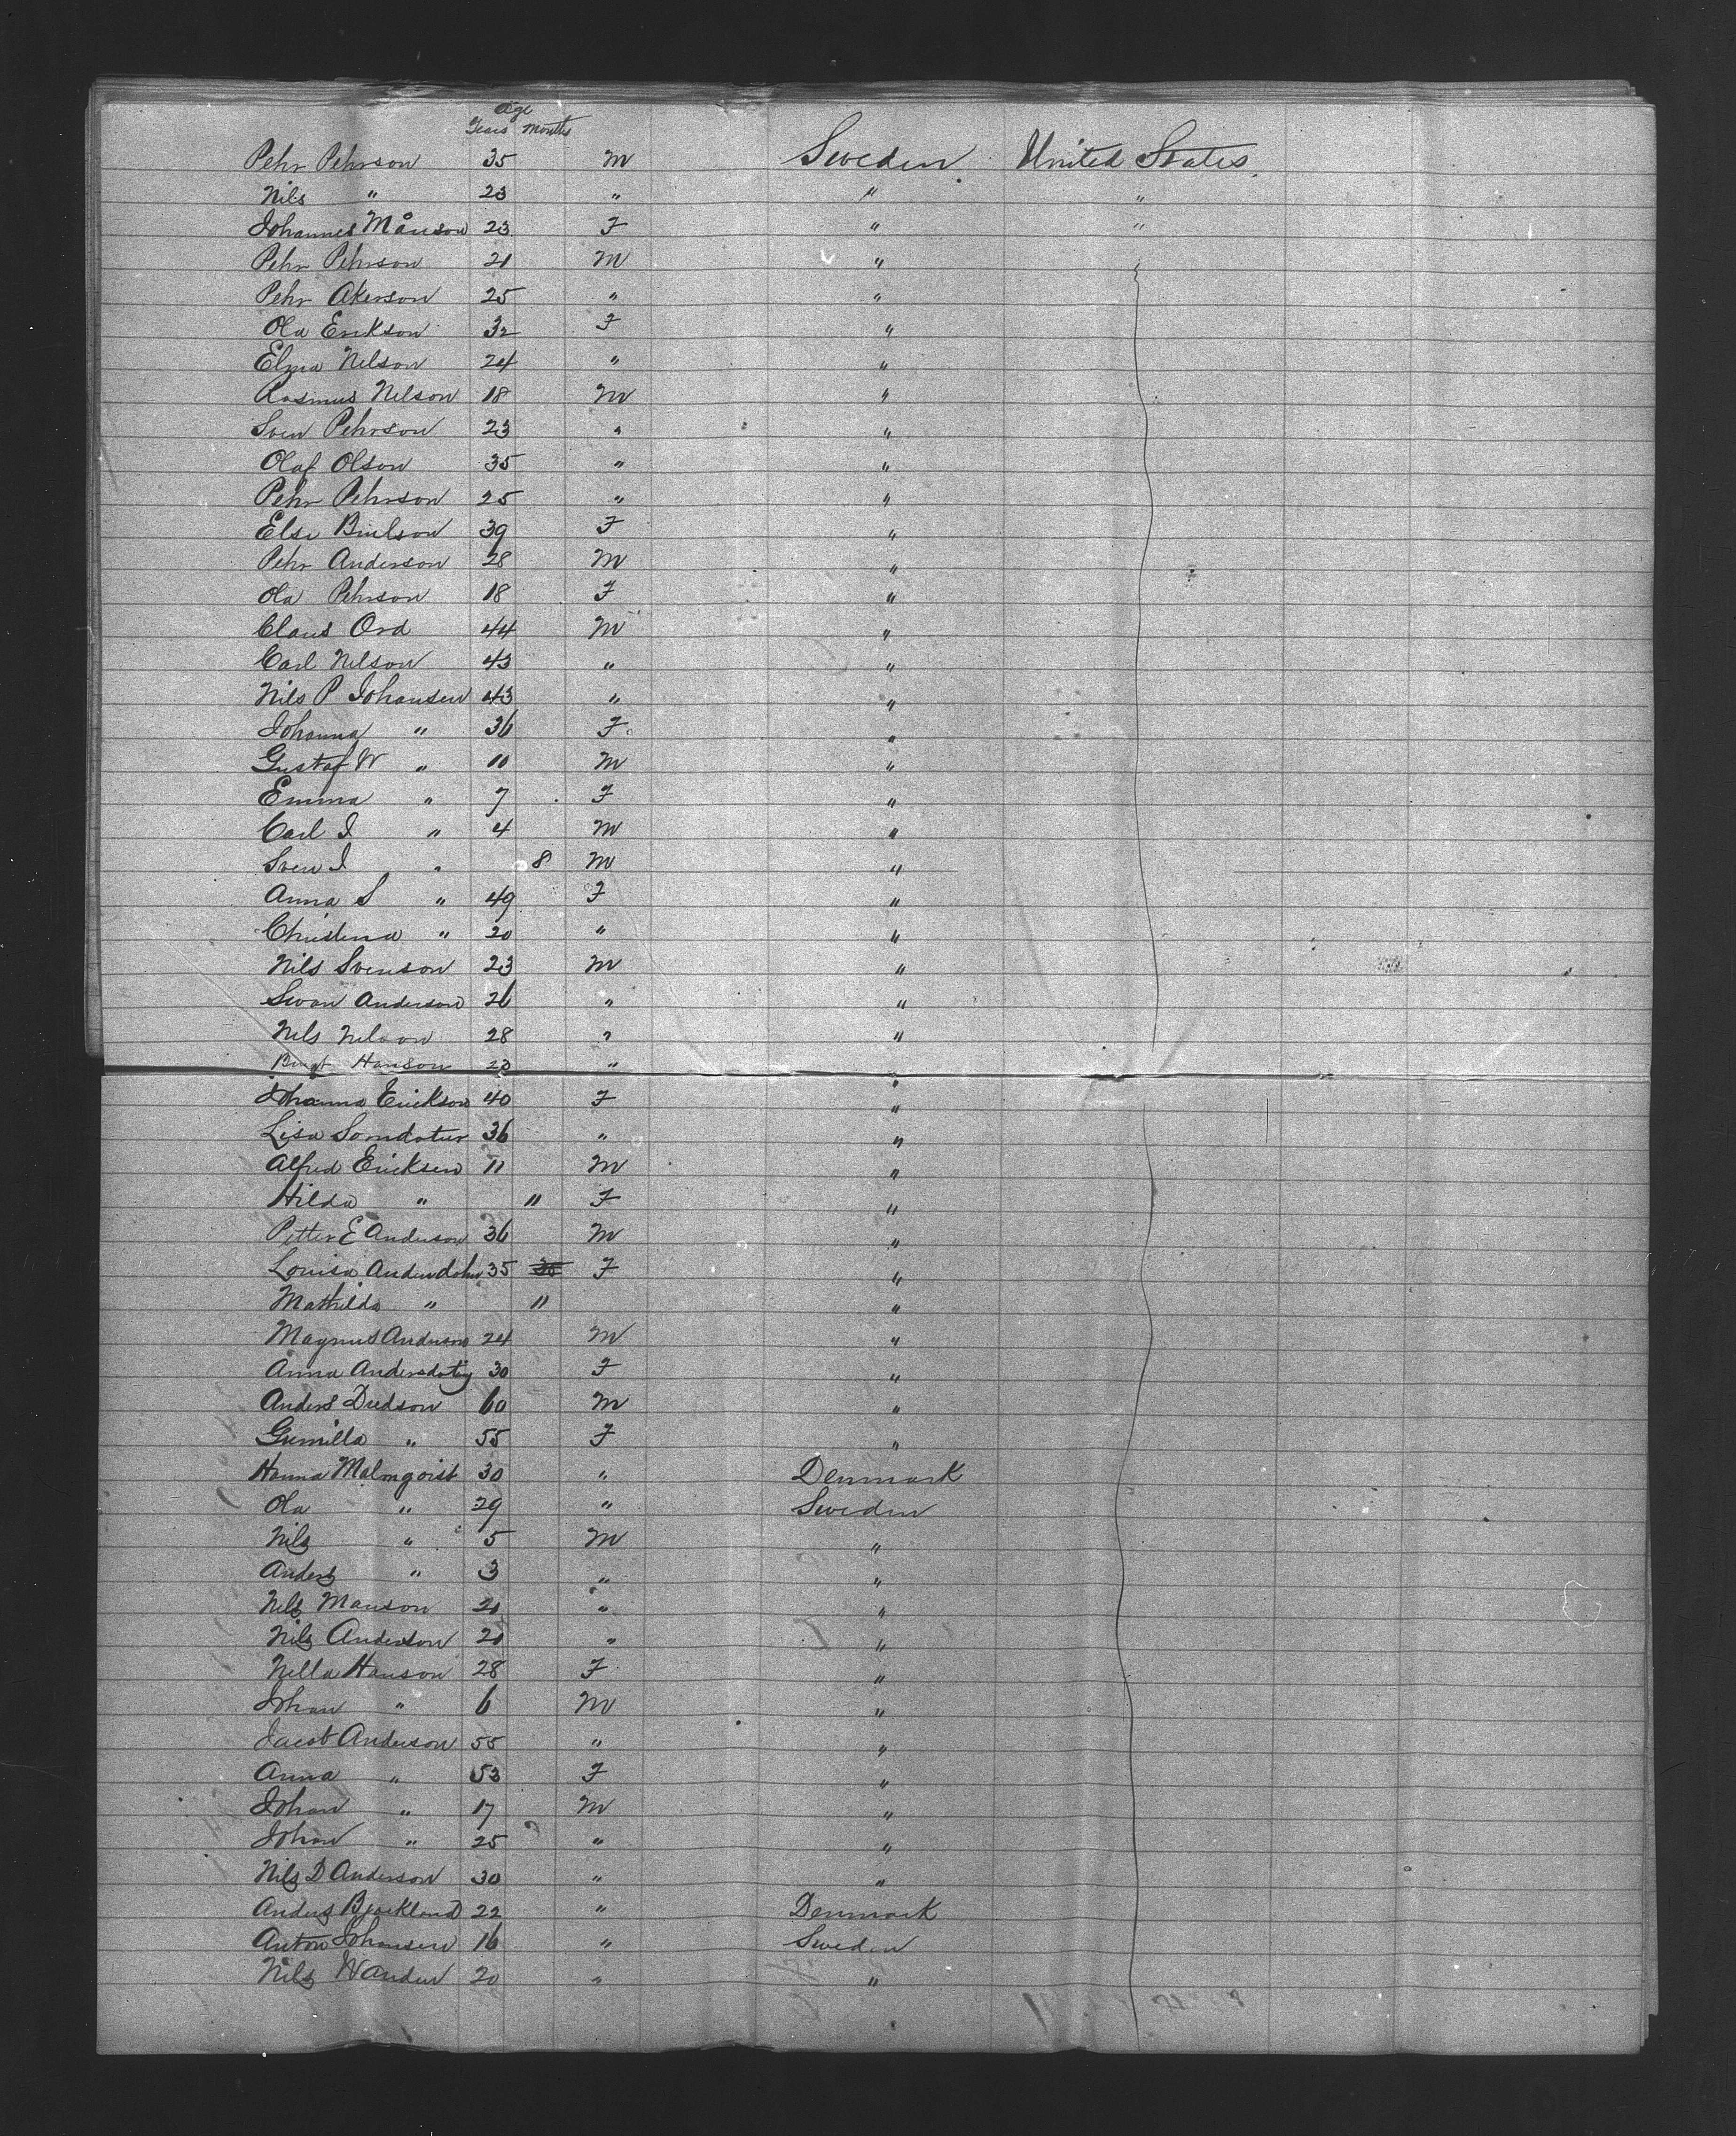 Age
Years Months
Pehr Pehrson 35 M Sweden United States
Nils " 23 " " "
Johannes Månson 23 F " "
Pehr Pehrson 21 M "
Pehr Akerson 25 " "
Ola Erikson 32 F "
Elna Nelson 24 " "
Rasmus Nelson 18 M "
Sven Pehrson 23 " "
Olaf Olson 35 " "
Pehr Pehrson 25 " "
Else 39 F "
Pehr Anderson 28 M "
Ola Pehrson 18 F "
Claus Ord 44 M "
Carl Nelson 43 " "
Nils P Johansen 43 " "
Johanna " 36 F "
Gustaf W " 10 M "
Emma " 7 F "
Carl J " 4 M "
Sven J " 8 M "
Anna S " 49 F "
Christina " 20 " "
Nils Svenson 23 M "
Swan Anderson 26 " "
Nels Nelson 28 " "
Bengt Hanson 23 " "
Johanna Erickson 40 F "
Lisa 36 " "
Alfred Ericksen 11 M "
Hilda " 11 F "
Petter E Anderson 36 M "
Louisa 35 F "
Mathilda " 11 "
Magnus Anderson 24 M "
Anna 30 F "
Anders 60 M "
Gunilla " 55 F "
Hanna Malmqvist 30 " Denmark
Ola " 29 " Sweden
Nils " 5 M "
Anders " 3 " "
Nels Manson 21 " "
Nils Anderson 21 " "
Nella Hanson 28 F "
Johan " 6 M "
Jacob Anderson 55 " "
Anna " 53 F "
Johan " 17 M "
Johan " 25 " "
Nils D Anderson 30 " "
Anders Bjorklund 22 " Denmark
Anton Johansen 16 " Sweden
Nils 20 " "